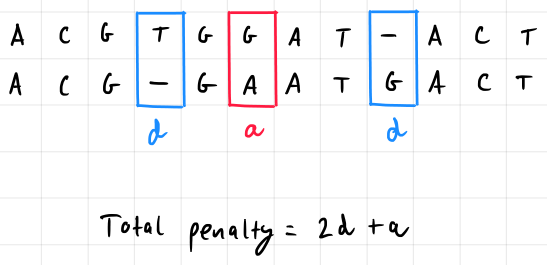 A C G T G G A T - A C T
A C G - G A A T G A C T
d a d
Total penalty = 2d + a